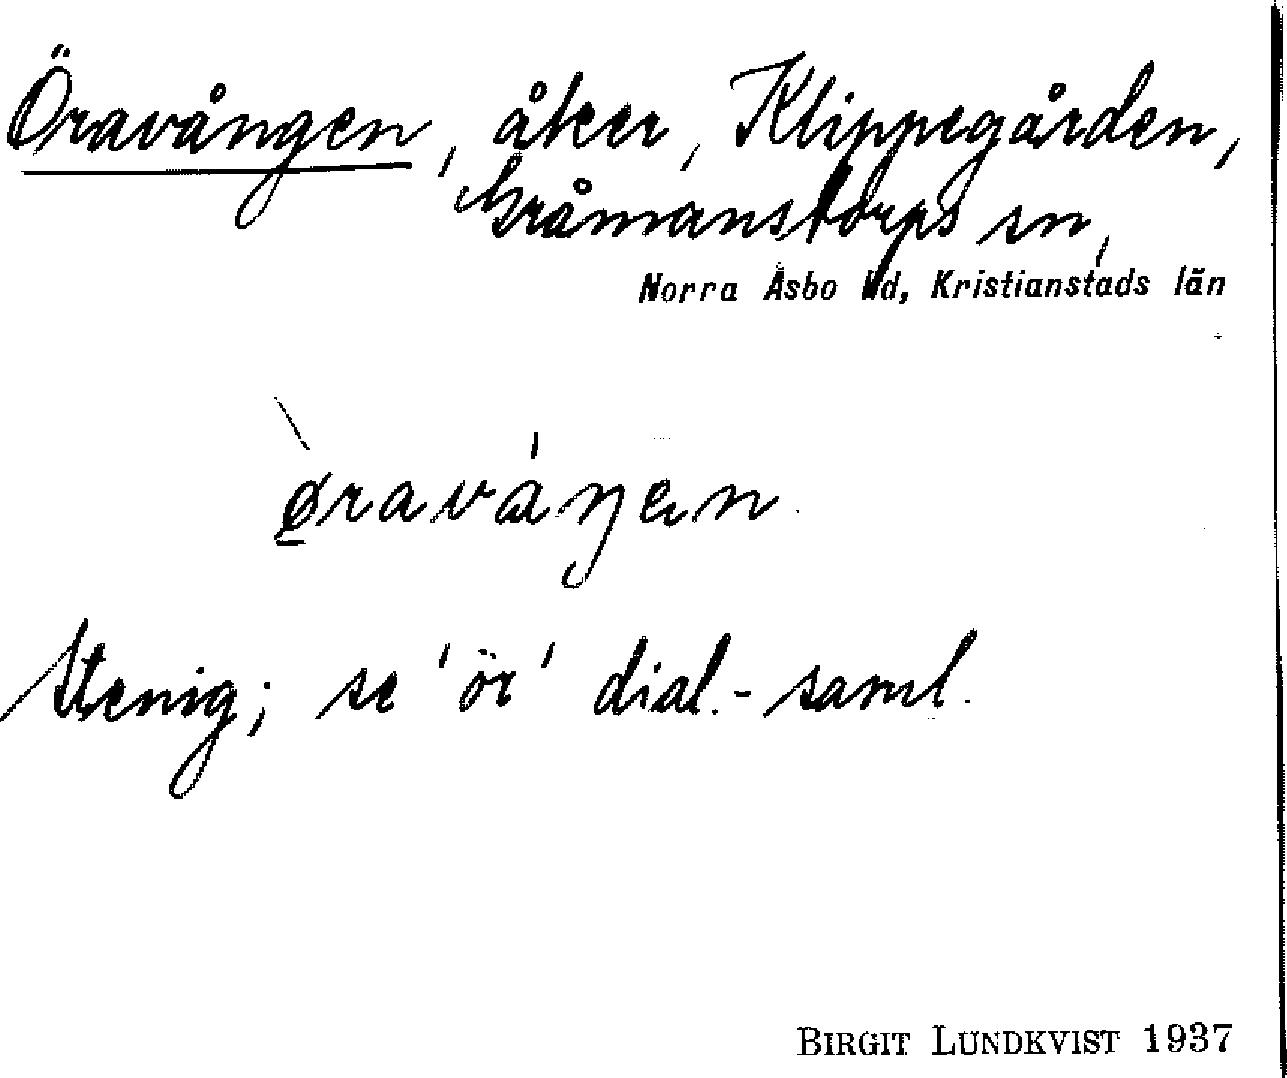 Öravången, åker, Klippegården,
Gråmanstorps sn,
Norra Åsbo hd, Kristianstads län
Stenig; se 'ör' dial.-saml.
BIRGIT LUNDKVIST 1937